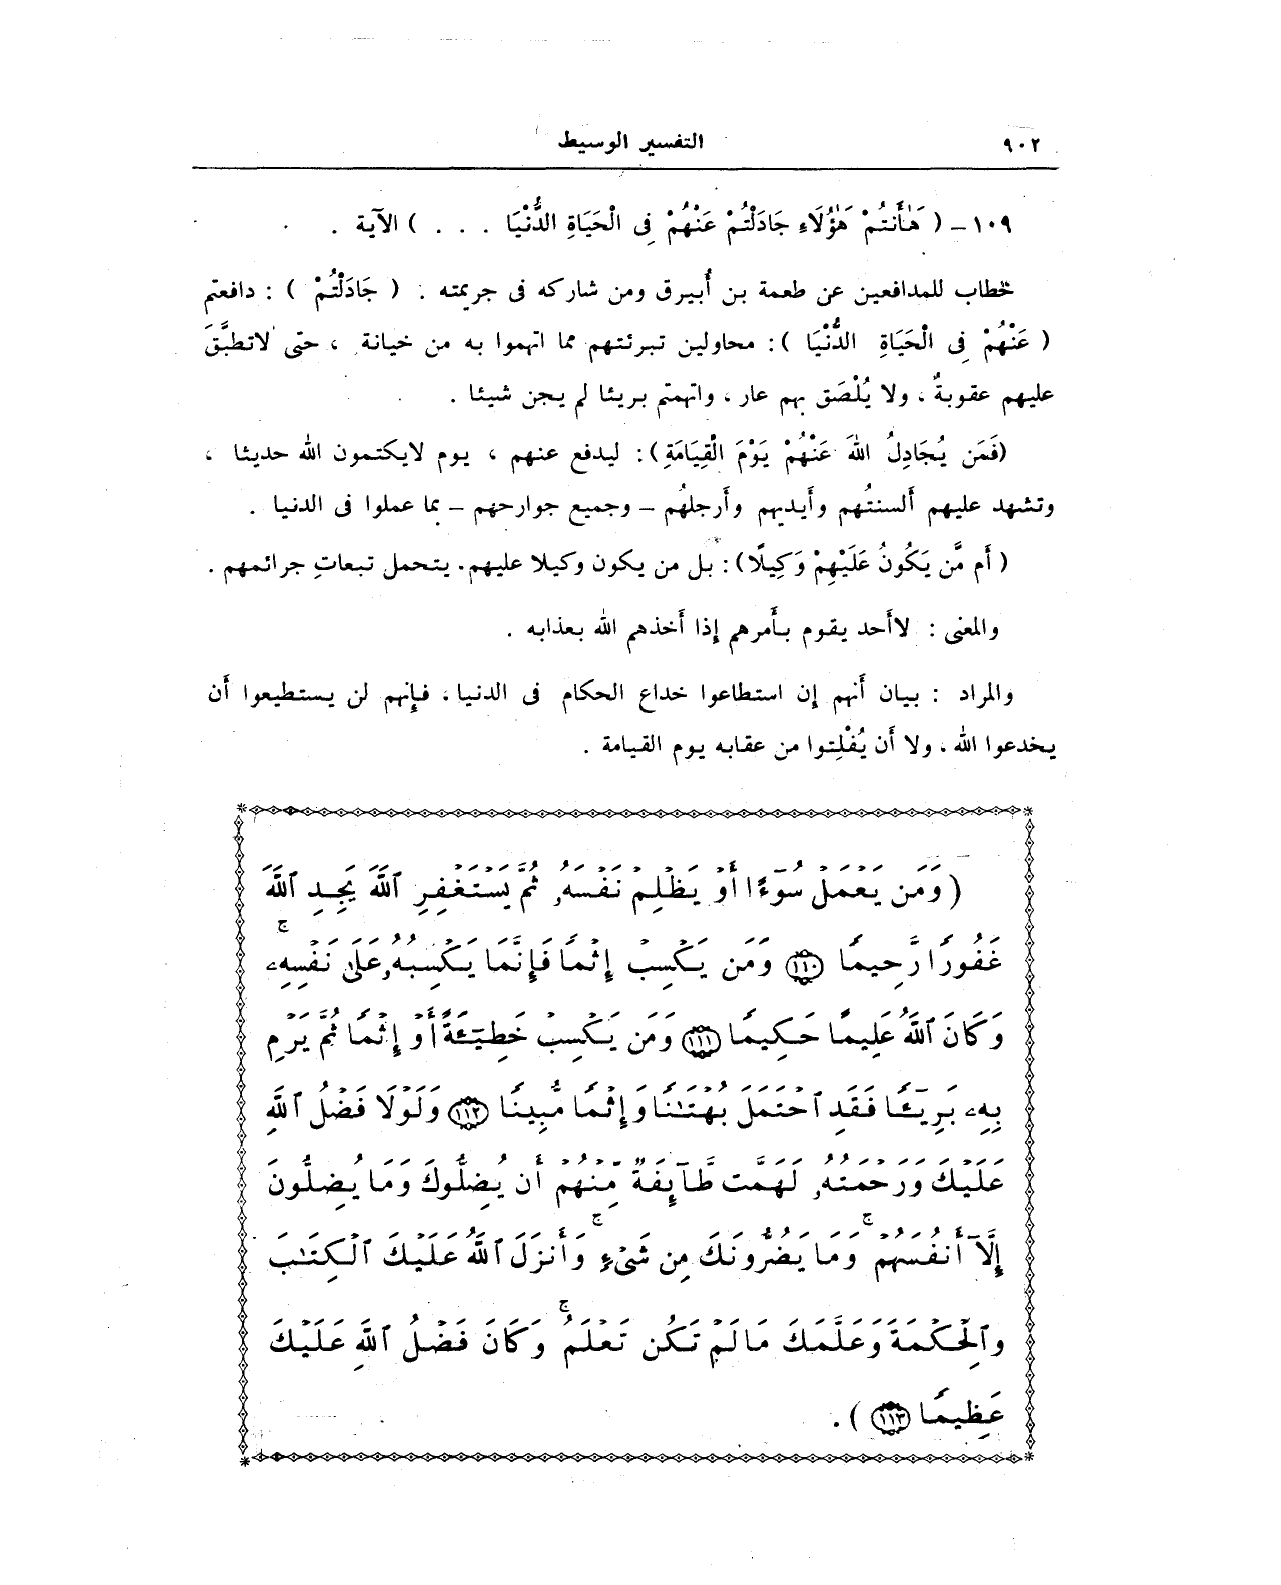 ٩٠٢
التفسير الوسيط
١٠٩ – ( هَٰأَنتُمْ هَٰؤُلَاءِ جَادَلْتُمْ عَنْهُمْ فِى الْحَيَاةِ الدُّنْيَا . . . ) الآية .
خطاب للمدافعين عن طعمة بن أُبيرق ومن شاركه فى جريمته . ( جَادَلْتُمْ ) : دافعتم
( عَنْهُمْ فِى الْحَيَاةِ الدُّنْيَا ) : محاولين تبرئتهم مما اتهموا به من خيانة ، حتى لاتطبَّقَ
عليهم عقوبةٌ ، ولا يُلْصَق بهم عار ، واتهمتم بريئا لم يجن شيئا .
(فَمَن يُجَادِلُ اللهَ عَنْهُمْ يَوْمَ الْقِيَامَةِ) : ليدفع عنهم ، يوم لايكتمون الله حديثا ،
وتشهد عليهم ألسنتُهم وأيديهم وأرجلهُم – وجميع جوارحهم – بما عملوا فى الدنيا .
( أَم مَّن يَكُونُ عَلَيْهِمْ وَكِيلًا) : بل من يكون وكيلا عليهم. يتحمل تبعاتِ جرائمهم .
والمعنى : لاأَحد يقوم بأَمرهم إذا أَخذهم الله بعذابه .
والمراد : بيان أَنهم إن استطاعوا خداع الحكام فى الدنيا ، فإنهم لن يستطيعوا أَن
يخدعوا الله ، ولا أَن يُفْلِتوا من عقابه يوم القيامة .
( وَمَن يَعْمَلْ سُوٓءًا أَوْ يَظْلِمْ نَفْسَهُۥ ثُمَّ يَسْتَغْفِرِ ٱللَّهَ يَجِدِ ٱللَّهَ
غَفُورًا رَّحِيمًا ١١٠ وَمَن يَكْسِبْ إِثْمًا فَإِنَّمَا يَكْسِبُهُۥ عَلَىٰ نَفْسِهِۦ ۚ
وَكَانَ ٱللَّهُ عَلِيمًا حَكِيمًا ١١١ وَمَن يَكْسِبْ خَطِيٓئَةً أَوْ إِثْمًا ثُمَّ يَرْمِ
بِهِۦ بَرِيٓـًٔا فَقَدِ ٱحْتَمَلَ بُهْتَٰنًا وَإِثْمًا مُّبِينًا ١١٢ وَلَوْلَا فَضْلُ ٱللَّهِ
عَلَيْكَ وَرَحْمَتُهُۥ لَهَمَّت طَّآئِفَةٌ مِّنْهُمْ أَن يُضِلُّوكَ وَمَا يُضِلُّونَ
إِلَّآ أَنفُسَهُمْ ۖ وَمَا يَضُرُّونَكَ مِن شَىْءٍ ۚ وَأَنزَلَ ٱللَّهُ عَلَيْكَ ٱلْكِتَٰبَ
وَٱلْحِكْمَةَ وَعَلَّمَكَ مَا لَمْ تَكُن تَعْلَمُ ۚ وَكَانَ فَضْلُ ٱللَّهِ عَلَيْكَ
عَظِيمًا ١١٣ ) .